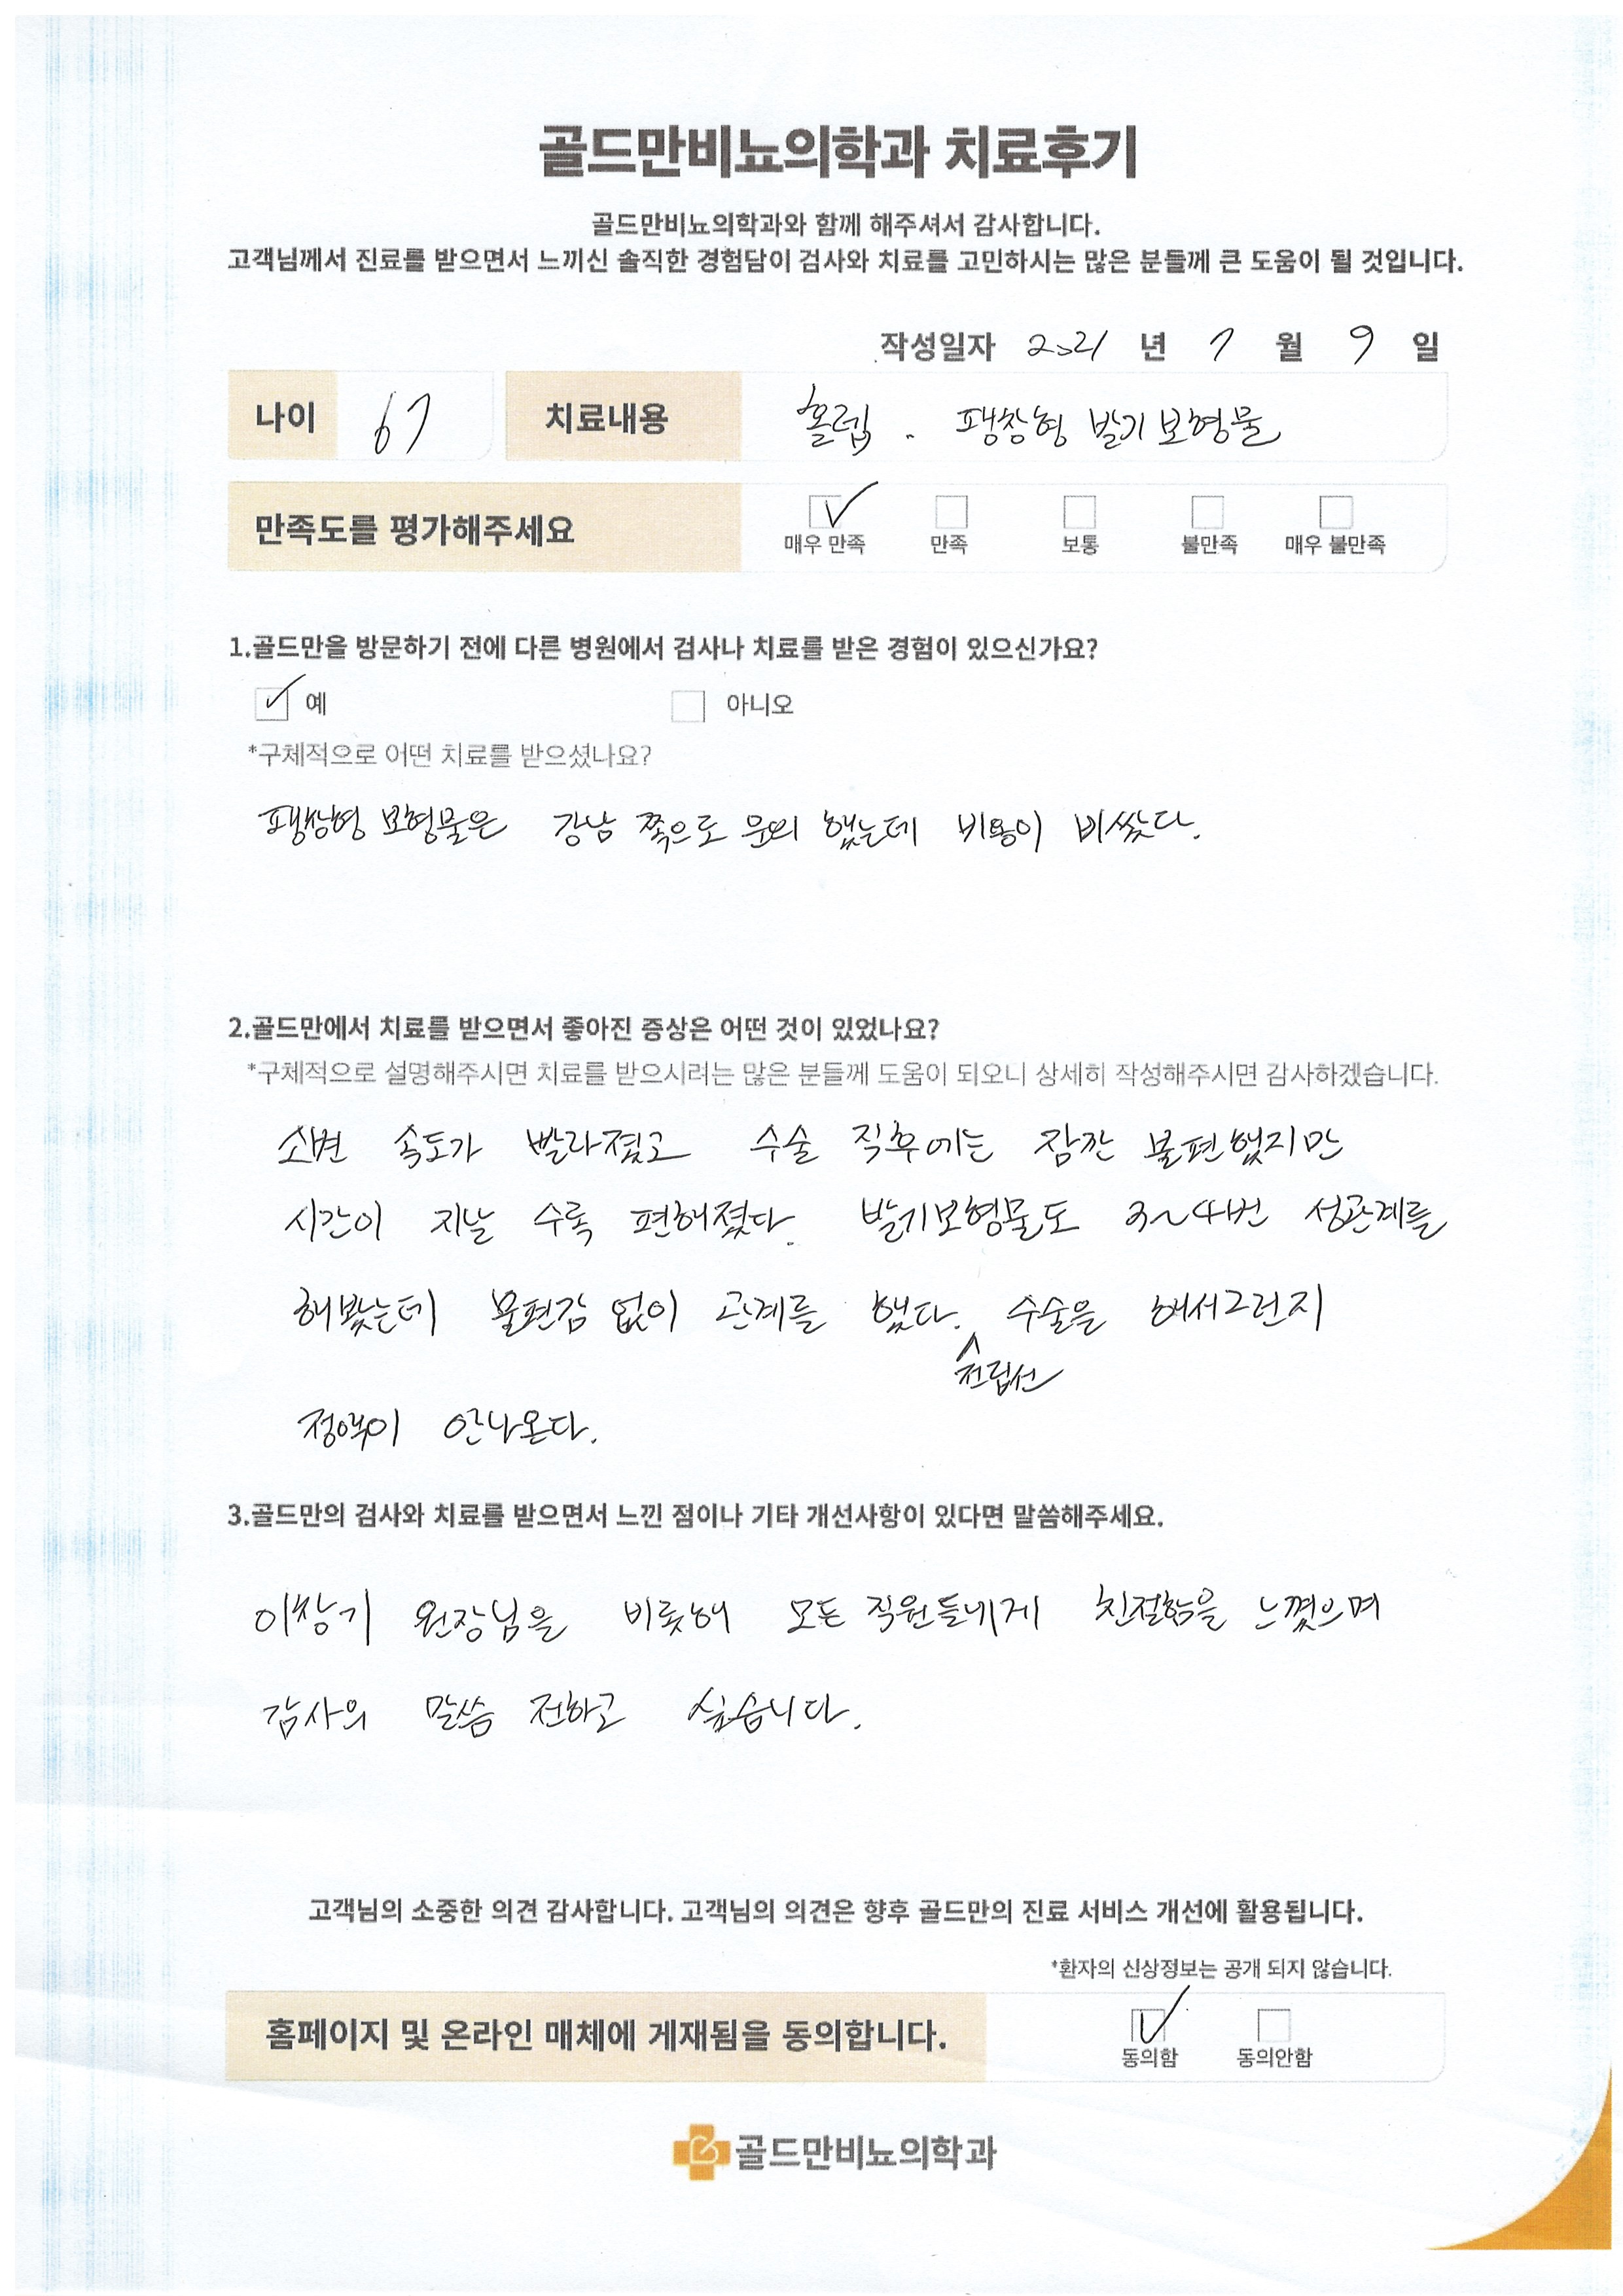 골드만비뇨의학과 치료후기
골드만비뇨의학과와 함께 해주셔서 감사합니다.
고객님께서 진료를 받으면서 느끼신 솔직한 경험담이 검사와 치료를 고민하시는 많은 분들께 큰 도움이 될 것입니다.
작성일자 2021 년 7 월 9 일
나이 67 치료내용 홀렙. 팽창형 발기보형물
만족도를 평가해주세요 매우 만족 만족 보통 불만족 매우 불만족
1.골드만을 방문하기 전에 다른 병원에서 검사나 치료를 받은 경험이 있으신가요?
예 아니오
*구체적으로 어떤 치료를 받으셨나요?
팽창형 보형물은 강남 쪽으로 문의 했는데 비용이 비쌌다.
2.골드만에서 치료를 받으면서 좋아진 증상은 어떤 것이 있었나요?
*구체적으로 설명해주시면 치료를 받으시려는 많은 분들께 도움이 되오니 상세히 작성해주시면 감사하겠습니다.
소변 속도가 빨라졌고 수술 직후에는 잠깐 불편했지만
시간이 지날 수록 편해졌다. 발기보형물도 3~4번 성관계를
해봤는데 불편감 없이 관계를 했다. 수술을 해서그런지
전립선
정액이 안나온다.
3.골드만의 검사와 치료를 받으면서 느낀 점이나 기타 개선사항이 있다면 말씀해주세요.
이창기 원장님을 비롯해 모든 직원들에게 친절함을 느꼈으며
감사의 말씀 전하고 싶습니다.
고객님의 소중한 의견 감사합니다. 고객님의 의견은 향후 골드만의 진료 서비스 개선에 활용됩니다.
*환자의 신상정보는 공개 되지 않습니다.
홈페이지 및 온라인 매체에 게재됨을 동의합니다. 동의함 동의안함
골드만비뇨의학과